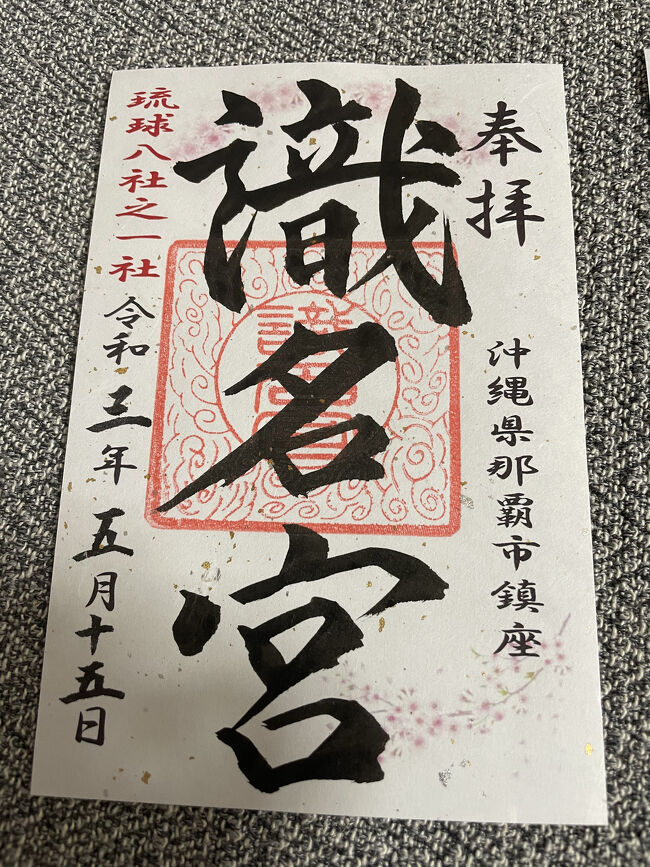 奉拝
沖縄県那覇市鎮座
識名宮
琉球八社之一社
令和三年五月十五日
識名宮